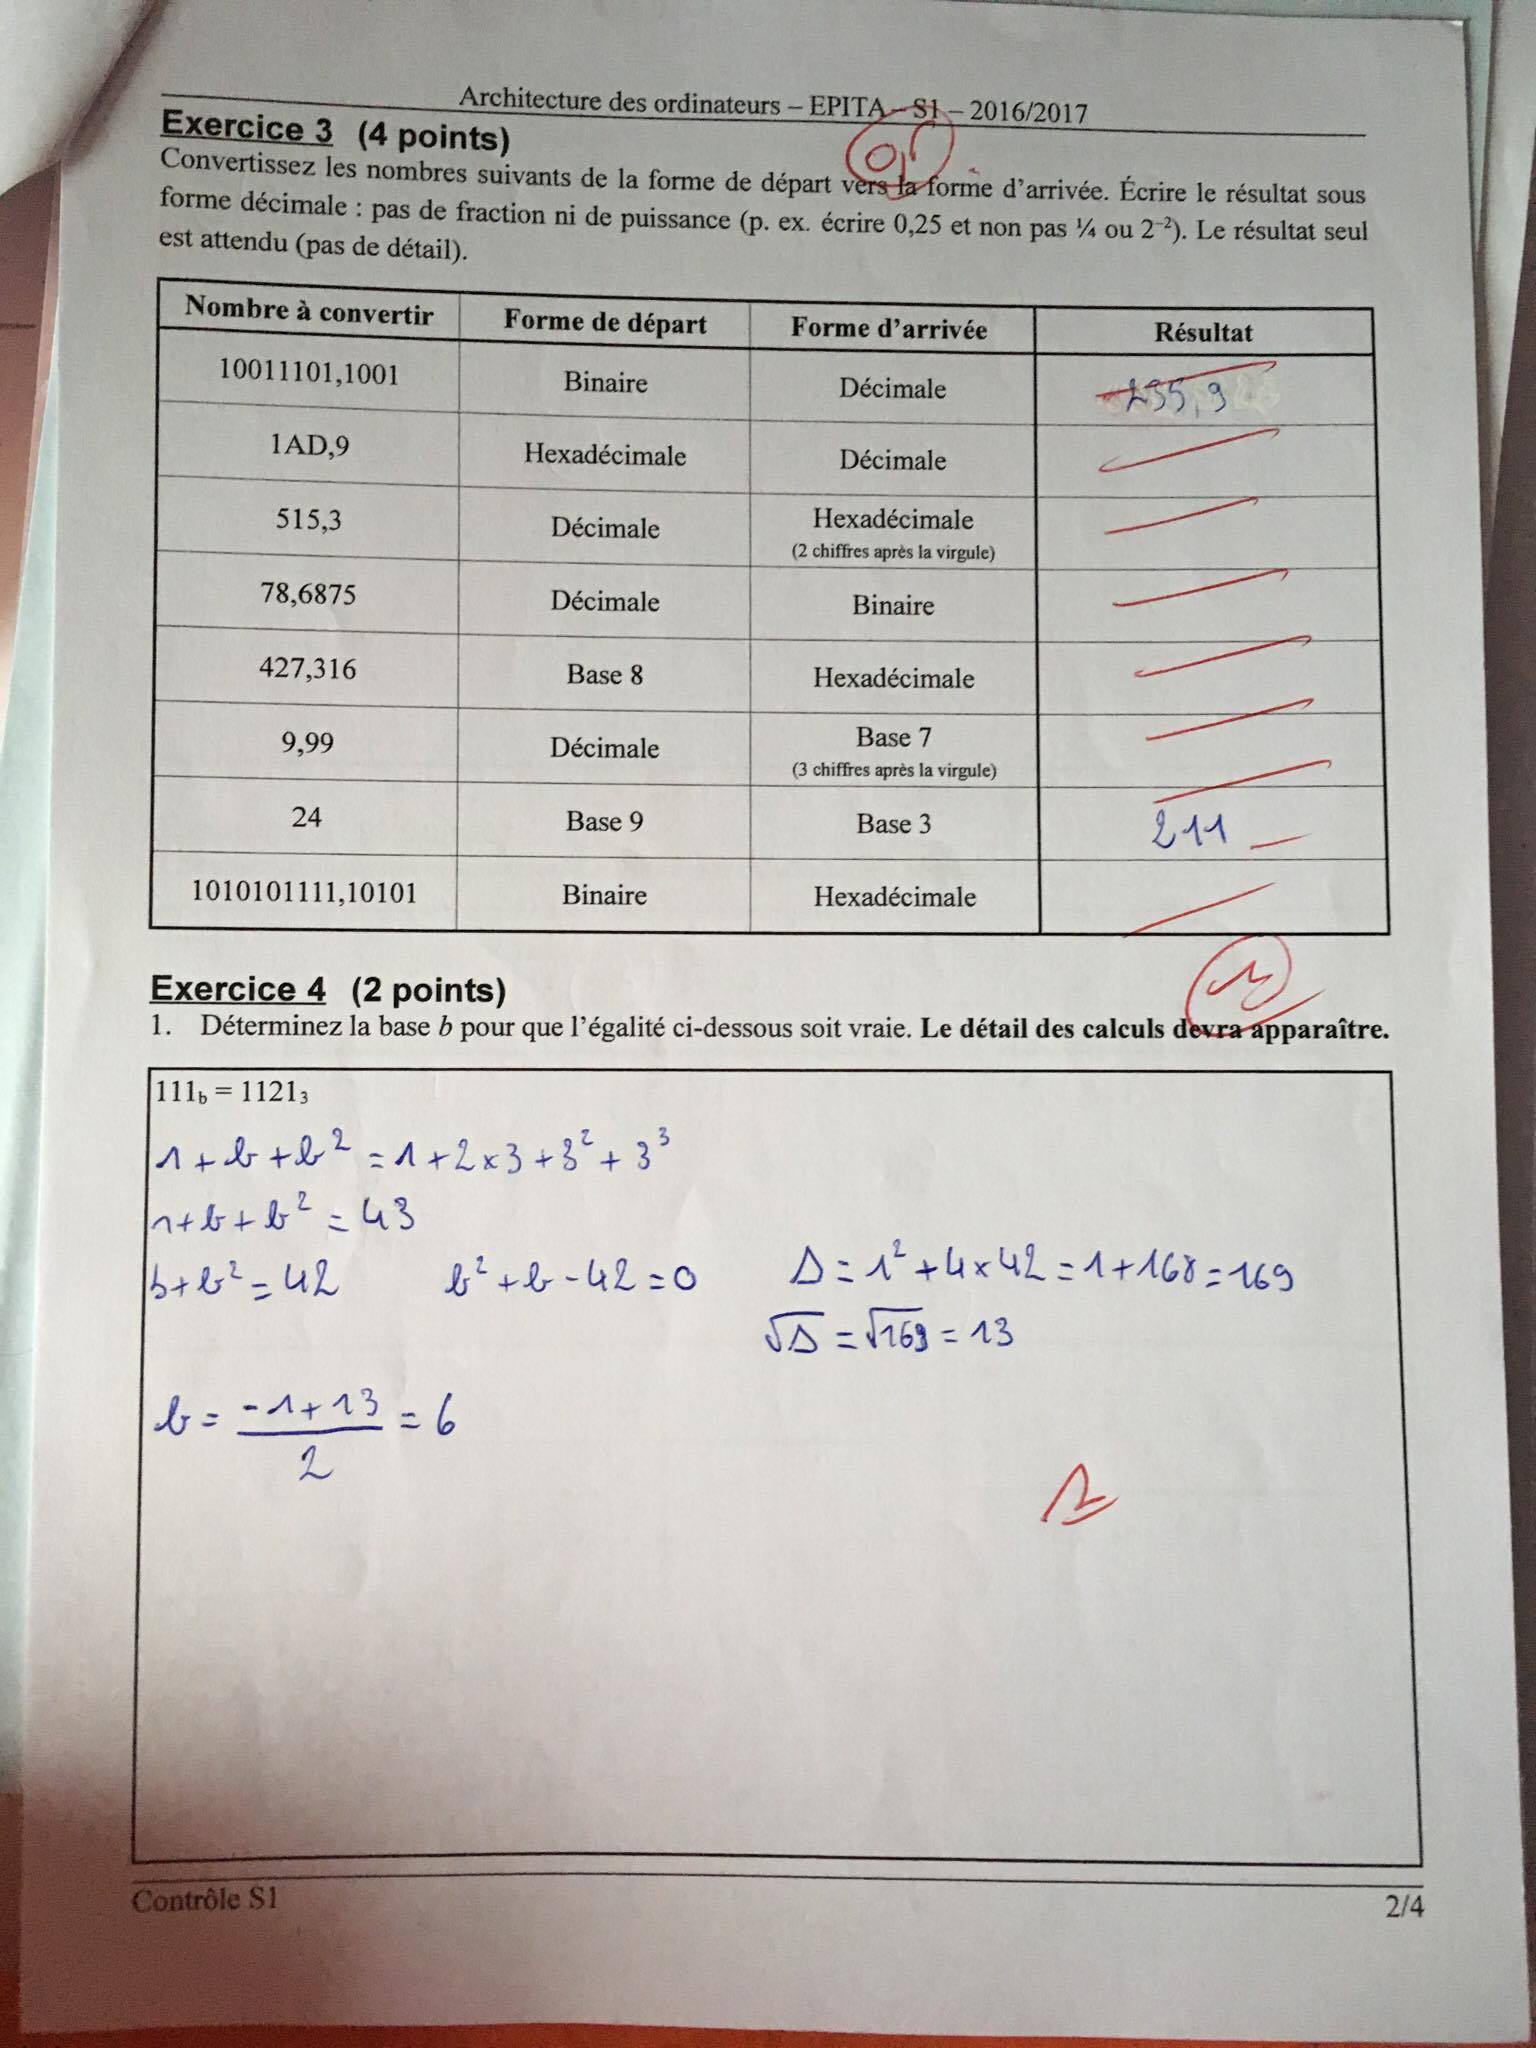 Architecture des ordinateurs – EPITA – S1 – 2016/2017
Exercice 3 (4 points)
Convertissez les nombres suivants de la forme de départ vers la forme d'arrivée. Écrire le résultat sous
forme décimale : pas de fraction ni de puissance (p. ex. écrire 0,25 et non pas ¼ ou 2⁻²). Le résultat seul
est attendu (pas de détail).
Nombre à convertir Forme de départ Forme d'arrivée Résultat
10011101,1001 Binaire Décimale
1AD,9 Hexadécimale Décimale
515,3 Décimale Hexadécimale
(2 chiffres après la virgule)
78,6875 Décimale Binaire
427,316 Base 8 Hexadécimale
9,99 Décimale Base 7
(3 chiffres après la virgule)
24 Base 9 Base 3 211
1010101111,10101 Binaire Hexadécimale
Exercice 4 (2 points)
1. Déterminez la base b pour que l'égalité ci-dessous soit vraie. Le détail des calculs devra apparaître.
111b = 1121₃
1 + b + b² = 1 + 2 x 3 + 3² + 3³
1 + b + b² = 43
b + b² = 42 b² + b - 42 = 0 Δ = 1² + 4 x 42 = 1 + 168 = 169
√Δ = √169 = 13
b = (-1 + 13)/2 = 6
Contrôle S1 2/4